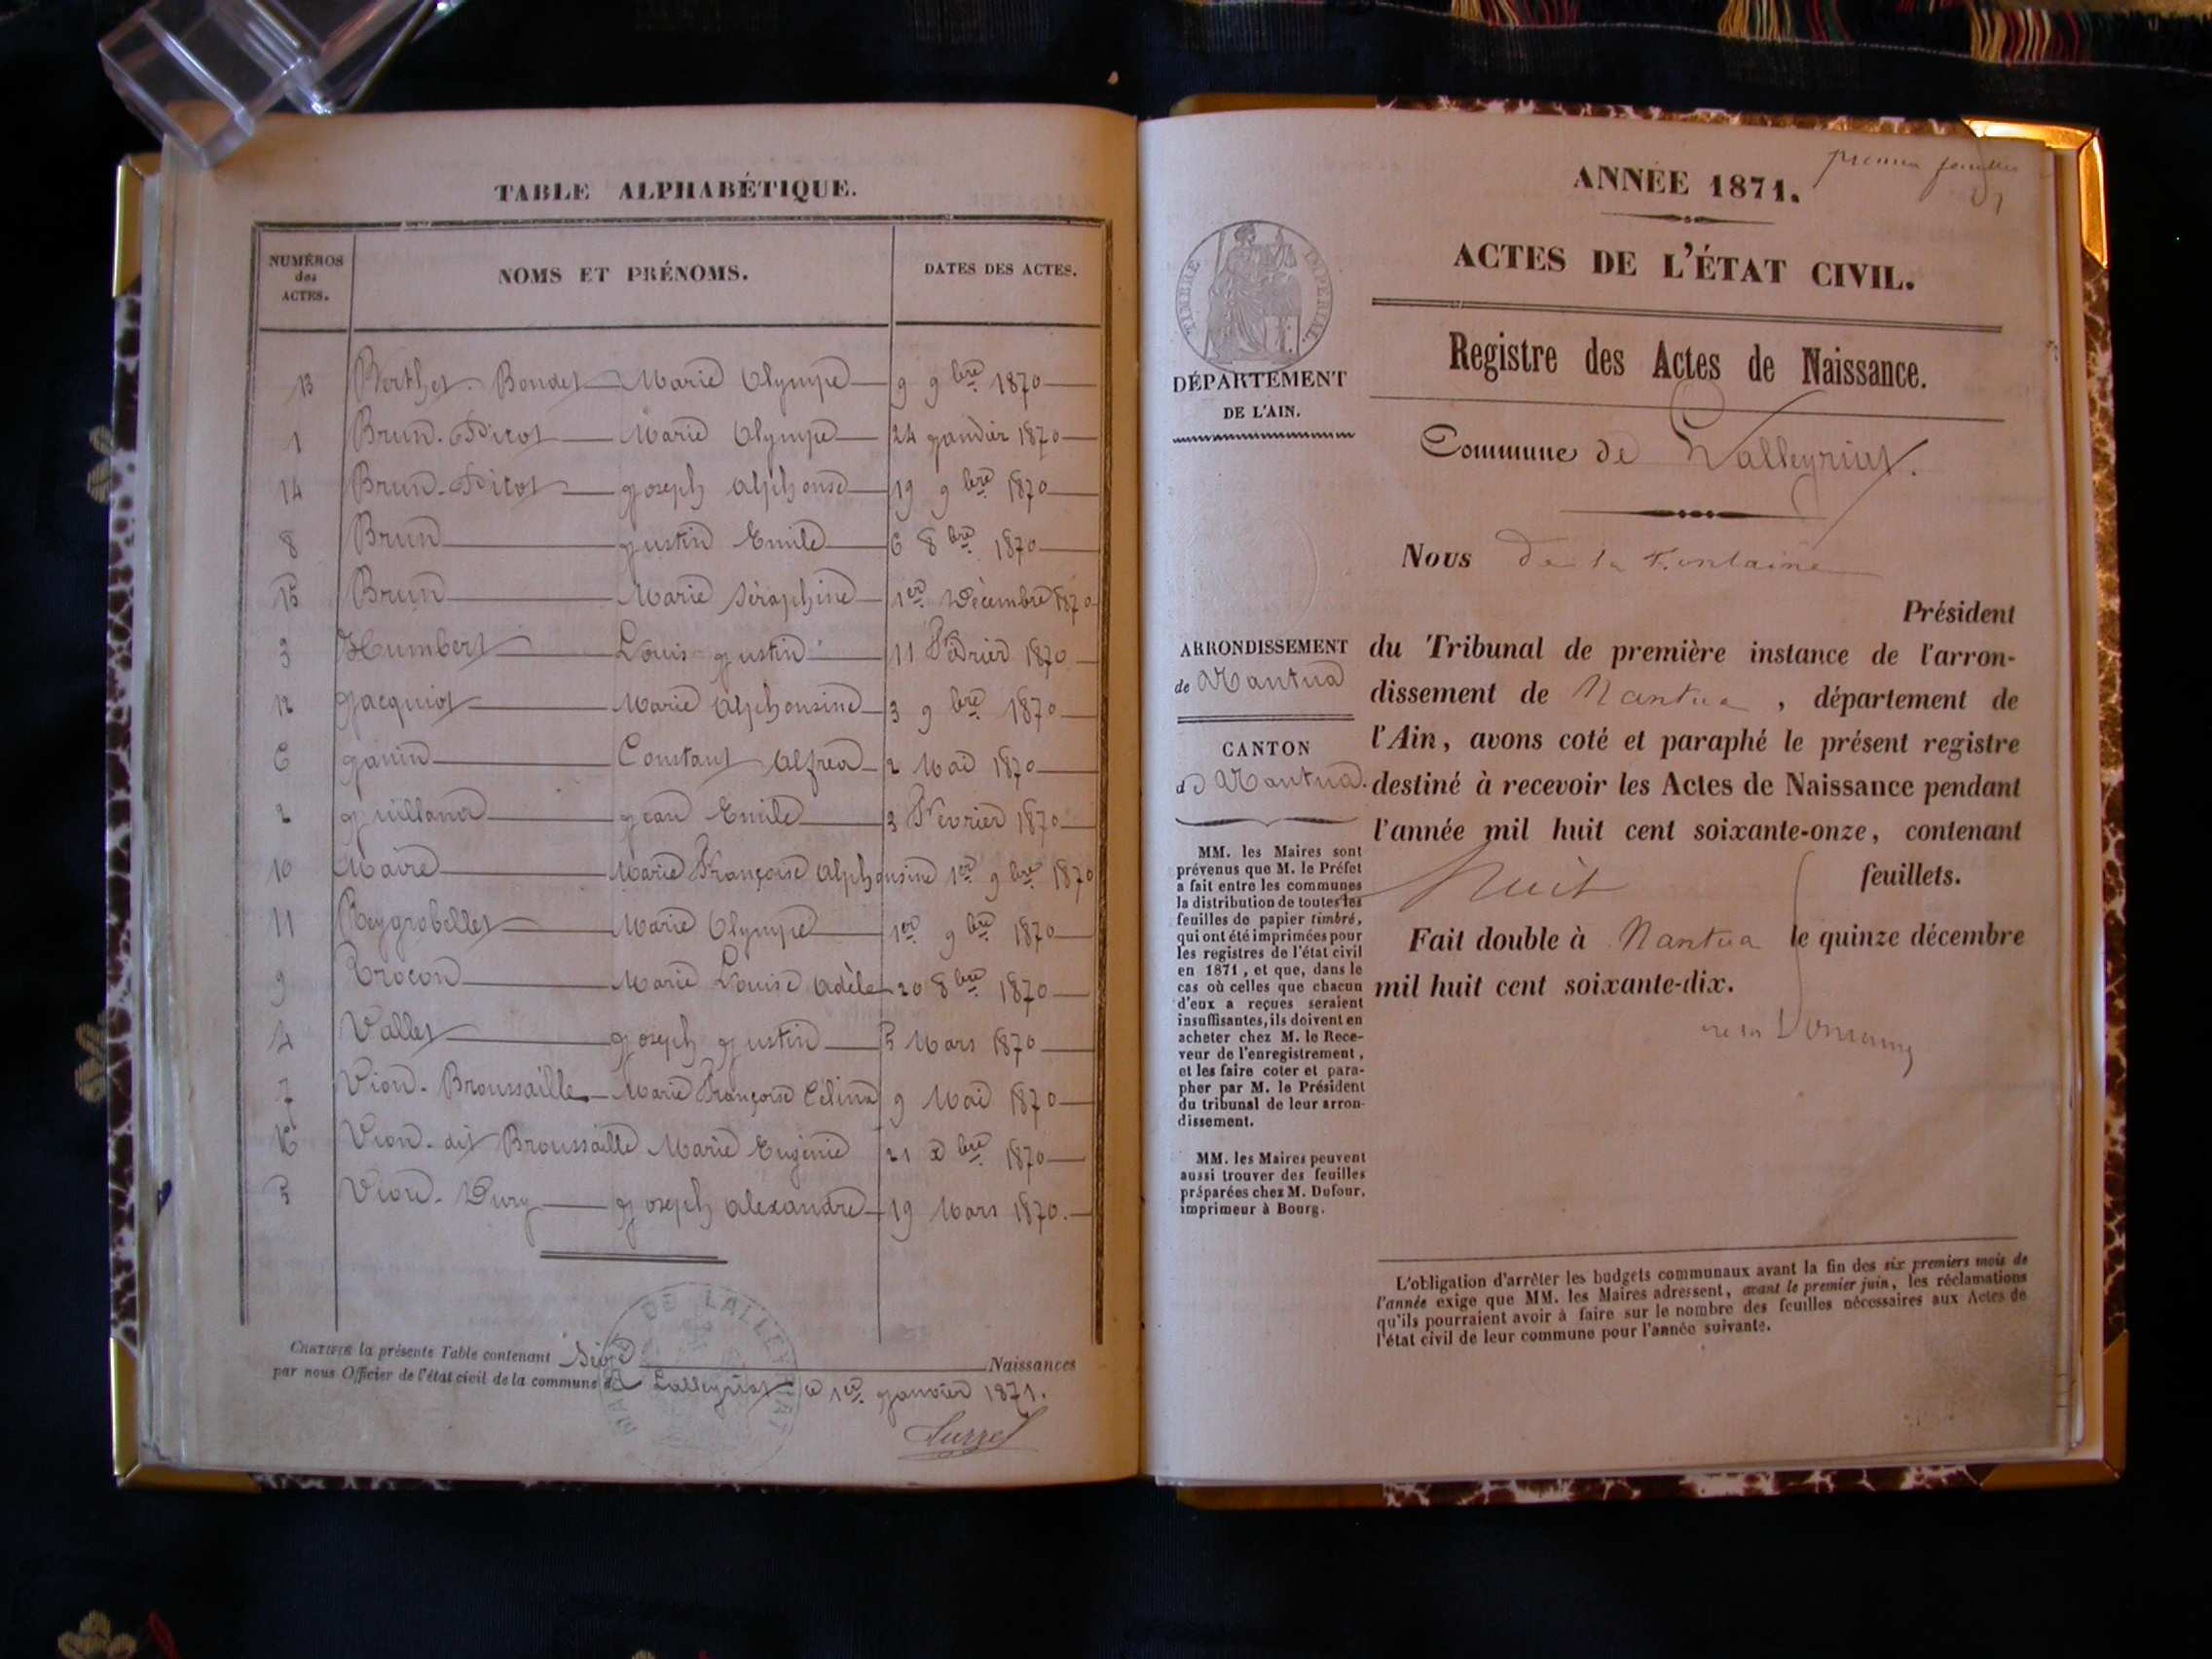 TABLE ALPHABÉTIQUE.
NUMÉROS des ACTES.
NOMS ET PRÉNOMS.
DATES DES ACTES.
13 Berthet-Bondet Marie Olympe 9 9bre 1870
1 Brun-Picot Marie Olympe 24 janvier 1870
14 Brun-Picot joseph alphonse 19 9bre 1870
8 Brun justin Emile 6 8bre 1870
15 Brun Marie Séraphine 1er Décembre 1870
3 Humbert Louis justin 11 Février 1870
12 jacquiot Marie alphonsine 3 9bre 1870
6 janin Constant alfred 2 Mai 1870
2 juilland jean Emile 3 Février 1870
10 Maire Marie Françoise alphonsine 1er 9bre 1870
11 Reygrobellet Marie Olympe 1er 9bre 1870
9 Trocon Marie Louise adèle 20 8bre 1870
4 Vallet joseph justin 5 Mars 1870
7 Vion-Broussaille Marie Françoise Célina 9 Mai 1870
16 Vion-dit Broussaille Marie Eugénie 21 xbre 1870
5 Viond-Dury joseph alexandre 19 Mars 1870.
CERTIFIÉ la présente Table contenant Seize Naissances
par nous Officier de l'état civil de la commune de Lalleyriat ce 1er janvier 1871.
premier feuillet
ANNÉE 1871.
ACTES DE L'ÉTAT CIVIL.
TIMBRE IMPÉRIAL.
Registre des Actes de Naissance.
DÉPARTEMENT
DE L'AIN.
Commune de Lalleyriat.
Nous De la Fontaine
Président
ARRONDISSEMENT
de Nantua
CANTON
de Nantua.
du Tribunal de première instance de l'arron-
dissement de Nantua, département de
l'Ain, avons coté et paraphé le présent registre
destiné à recevoir les Actes de Naissance pendant
l'année mil huit cent soixante-onze, contenant
huit feuillets.
Fait double à Nantua le quinze décembre
mil huit cent soixante-dix.
MM. les Maires sont
prévenus que M. le Préfet
a fait entre les communes
la distribution de toutes les
feuilles de papier timbré,
qui ont été imprimées pour
les registres de l'état civil
en 1871, et que, dans le
cas où celles que chacun
d'eux a reçues seraient
insuffisantes, ils doivent en
acheter chez M. le Rece-
veur de l'enregistrement,
et les faire coter et para-
pher par M. le Président
du tribunal de leur arron-
dissement.
MM. les Maires peuvent
aussi trouver des feuilles
préparées chez M. Dufour,
imprimeur à Bourg.
L'obligation d'arrêter les budgets communaux avant la fin des six premiers mois de
l'année exige que MM. les Maires adressent, avant le premier juin, les réclamations
qu'ils pourraient avoir à faire sur le nombre des feuilles nécessaires aux Actes de
l'état civil de leur commune pour l'année suivante.